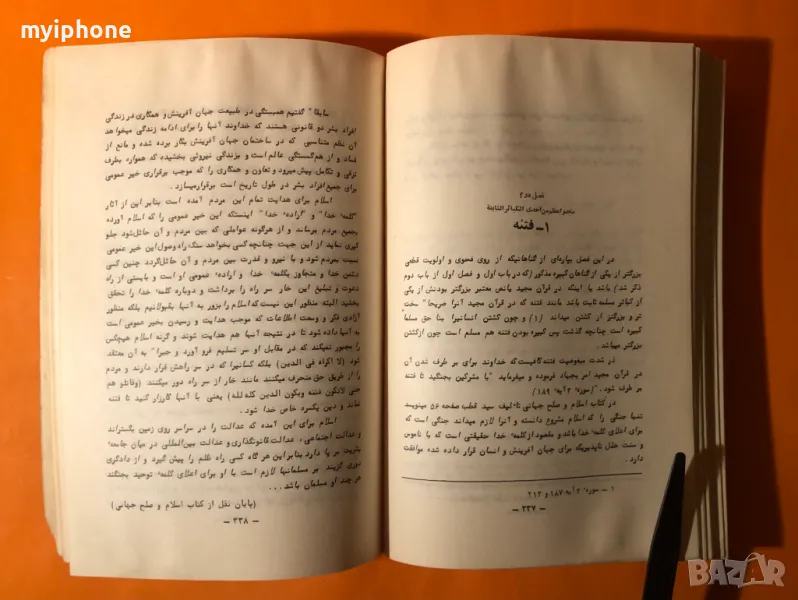 myiphone
فصل دوم
۱ـ فتنه
در این فصل بپاره‌ای از گناهانیکه از روی فحوی و اولویت قطعی
بزرگتر از یکی از گناهان کبیره مذکور (که در باب اول و فصل اول از باب دوم
ذکر شد) باشد یا اینکه در قرآن مجید یانص معتبر بزرگتر بودنش از یکی
از کبائر مسلمه ثابت باشد مانند فتنه که در قرآن مجید آنرا صریحا" سخت
تر و بزرگتر از کشتن میداند (۱) و چون کشتن انسانیرا بنا حق مسلما"
کبیره است چنانچه گذشت پس کبیره بودن فتنه هم مسلم است چون ازکشتن
بزرگتر میباشد.
در شدت مبغوضیت فتنه کافیست که خداوند برای بر طرف شدن آن
در قرآن مجید امر بجهاد فرموده و میفرماید "با مشرکین بجنگید تا فتنه
بر طرف شود." (سوره ۲ آیه ۱۸۹)
در کتاب اسلام و صلح جهانی تالیف سید قطب صفحه ۵۶ مینویسد
تنها جنگی را که اسلام مشروع دانسته و آنرا لازم میداند جنگی است که
برای اعلای کلمه خدا باشد و مقصود از کلمه خدا حقیقتی است که با ناموس
و سنت خلل ناپذیریکه برای جهان آفرینش و انسان قرار داده شده موافقت
دارد.
۱ ـ سوره ۲ آیه ۱۸۷ و ۲۱۳
ـ ۳۳۷ ـ
سابقا" گفتیم همبستگی در طبیعت جهان آفرینش و همکاری در زندگی
افراد بشر دو قانونی هستند که خداوند آنها را برای ادامه زندگی میخواهد
آن نظم متناسبی که در ساختمان جهان آفرینش بکار برده شده و مانع از
فساد و از هم‌گسستگی عالم است و بزندگی نیروئی بخشیده که همواره بطرف
ترقی و تکامل پیش میرود و تعاون و همکاری را که موجب برقراری خیر عمومی
برای جمیع افراد بشر در طول تاریخ است برقرار میسازد.
اسلام برای هدایت تمام این مردم آمده است بنابر این از آثار
"کلمه خدا" و "اراده خدا" اینستکه این خیر عمومی را که اسلام آورده
بجمیع مردم برساند و از هرگونه عواملی که بین مردم و آن حائل شود جلو
گیری نماید از این جهت چنانچه کسی بخواهد سنگ راه وصول این خیر عمومی
نسبت بمردم شود و با نیرو و قدرت بین مردم و آن حائل گردد چنین کسی
دشمن خدا و متجاوز بکلمه خدا و اراده عمومی او است و بایستی از راه
دعوت و تبلیغ این خار سر راه را برداشت و دوباره کلمه خدا را تحقق
بخشید البته منظور این نیست که اسلام را بزور به آنها بقبولانیم بلکه منظور
آزادی فکر و وسعت اطلاعات که موجب هدایت و رسیدن بخیر عمومی است
به آنها داده شود تا در نتیجه آنها هم هدایت شوند و گرنه اسلام هیچکس
را مجبور نمیکند که در مقابل او سر تسلیم فرو آورد و جبرا" به آن معتقد
شود (لا اکراه فی الدین) بلکه کسانیرا که در سر راهش قرار دارند و مردم
را از طریق حق منحرف میکنند مانند خار از سر راه دور میکنند (وقاتلو هم
حتی لاتکون فتنه ویکون الدین کله لله) یعنی با آنها کارزار کنید تا فتنه
نماند و دین یکسره خاص خدا شود.
اسلام برای این آمده که عدالت را در سراسر روی زمین بگستراند
و عدالت اجتماعی، عدالت قانونگذاری و عدالت بین‌المللی در میان جامعه
بشریت بر پا دارد بنابراین هر گاه کسی راه ظلم را پیش گیرد و از دادگری
دوری گزیند بر مسلمانها لازم است با او برای اعلای کلمه توحید بجنگند
هر چند او مسلمان باشد ...
(پایان نقل از کتاب اسلام و صلح جهانی)
ـ ۳۳۸ ـ
BAZAR